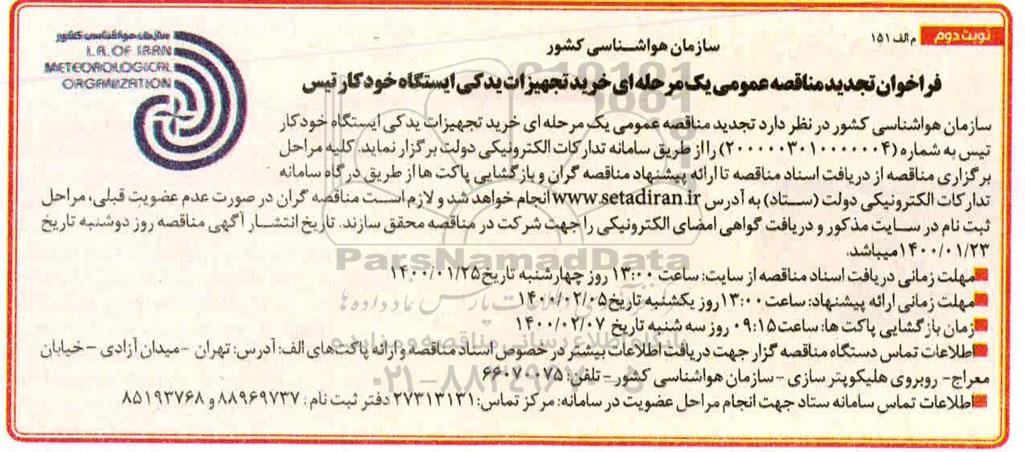 نوبت دوم
م الف ۱۵۱
سازمان هواشناسی کشور
I.R. OF IRAN
METEOROLOGICAL
ORGANIZATION
سازمان هواشناسی کشور
فراخوان تجدید مناقصه عمومی یک مرحله ای خرید تجهیزات یدکی ایستگاه خودکار تیس
سازمان هواشناسی کشور در نظر دارد تجدید مناقصه عمومی یک مرحله ای خرید تجهیزات یدکی ایستگاه خودکار
تیس به شماره (۲۰۰۰۰۰۳۰۱۰۰۰۰۰۰۴) را از طریق سامانه تدارکات الکترونیکی دولت برگزار نماید. کلیه مراحل
برگزاری مناقصه از دریافت اسناد مناقصه تا ارائه پیشنهاد مناقصه گران و بازگشایی پاکت ها از طریق درگاه سامانه
تدارکات الکترونیکی دولت (ستاد) به آدرس www.setadiran.ir انجام خواهد شد و لازم است مناقصه گران در صورت عدم عضویت قبلی، مراحل
ثبت نام در سایت مذکور و دریافت گواهی امضای الکترونیکی را جهت شرکت در مناقصه محقق سازند. تاریخ انتشار آگهی مناقصه روز دوشنبه تاریخ
۱۴۰۰/۰۱/۲۳ میباشد.
مهلت زمانی دریافت اسناد مناقصه از سایت: ساعت ۱۳:۰۰ روز چهارشنبه تاریخ ۱۴۰۰/۰۱/۲۵
مهلت زمانی ارائه پیشنهاد: ساعت ۱۳:۰۰ روز یکشنبه تاریخ ۱۴۰۰/۰۲/۰۵
زمان بازگشایی پاکت ها: ساعت ۰۹:۱۵ روز سه شنبه تاریخ ۱۴۰۰/۰۲/۰۷
اطلاعات تماس دستگاه مناقصه گزار جهت دریافت اطلاعات بیشتر در خصوص اسناد مناقصه و ارائه پاکت های الف: آدرس: تهران -میدان آزادی -خیابان
معراج- روبروی هلیکوپتر سازی -سازمان هواشناسی کشور- تلفن: ۶۶۰۷۰۰۷۵
اطلاعات تماس سامانه ستاد جهت انجام مراحل عضویت در سامانه: مرکز تماس: ۲۷۳۱۳۱۳۱ دفتر ثبت نام: ۸۸۹۶۹۷۳۷ و ۸۵۱۹۳۷۶۸
ParsNamadData
پایگاه اطلاع رسانی مناقصه و مزایده